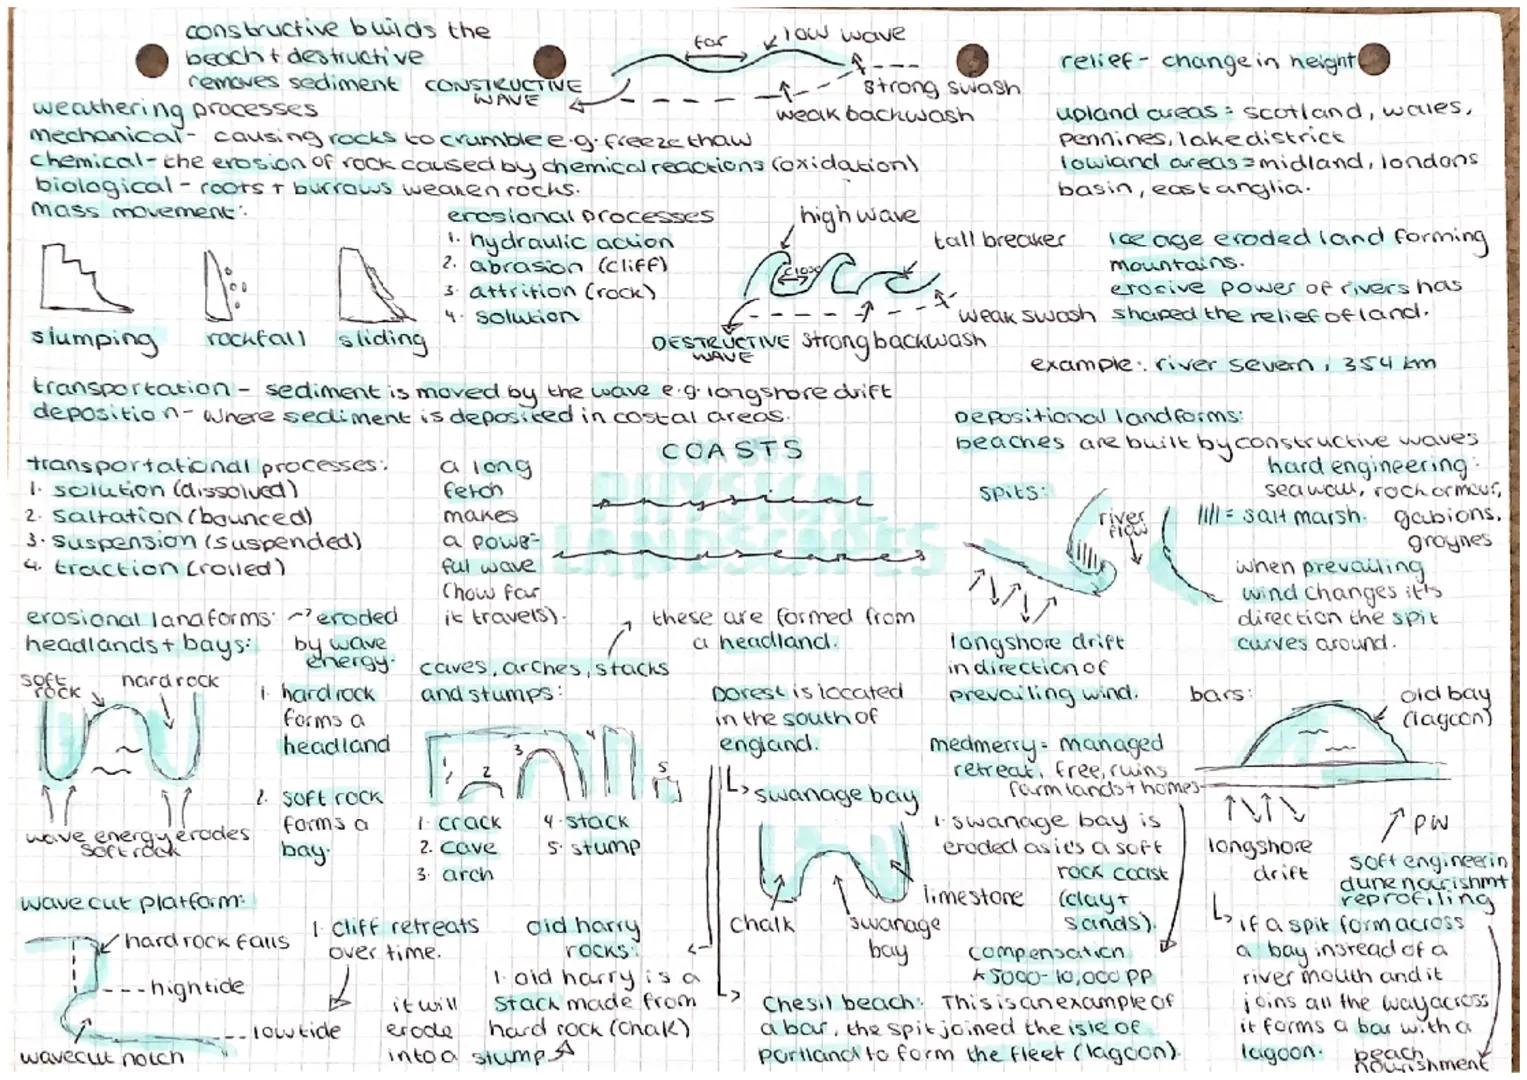 constructive builds the
beach + destructive
removes sediment
CONSTRUCTIVE
WAVE
far
low wave
strong swash
weak backwash
relief - change in height
upland areas = scotland, wales,
pennines, lake district
lowland areas = midland, londons
basin, east anglia.
weathering processes
mechanical - causing rocks to crumble e.g. freeze thaw
chemical - the erosion of rock caused by chemical reactions (oxidation)
biological - roots + burrows weaken rocks.
mass movement:
slumping
rockfall
sliding
erosional processes
1. hydraulic action
2. abrasion (cliff)
3. attrition (rock)
4. solution
high wave
tall breaker
close
weak swash
DESTRUCTIVE
WAVE
strong backwash
Ice age eroded land forming
mountains.
erosive power of rivers has
shaped the relief of land.
example: river severn, 354 km
transportation - sediment is moved by the wave e.g. longshore drift
deposition - where sediment is deposited in costal areas.
COASTS
PHYSICAL
physical
LANDSCAPES
landscapes
transportational processes:
1. solution (dissolved)
2. saltation (bounced)
3. suspension (suspended)
4. traction (rolled)
a long
fetch
makes
a power-
ful wave
(how far
it travels).
Depositional landforms:
beaches are built by constructive waves
spits:
river
flow
= salt marsh.
longshore drift
in direction of
prevailing wind.
hard engineering:
sea wall, rock armour,
gabions,
groynes
when prevailing
wind changes it's
direction the spit
curves around.
erosional landforms:
headlands + bays:
eroded
by wave
energy.
soft
rock
hard rock
wave energy erodes
soft rock
1. hard rock
forms a
headland
2. soft rock
forms a
bay.
these are formed from
a headland.
caves, arches, stacks
and stumps:
1
2
3
4
5
1. crack
2. cave
3. arch
4. stack
5. stump
Dorest is located
in the south of
england.
swanage bay
chalk
swanage
bay
limestone
1. swanage bay is
eroded as it's a soft
rock coast
(clay +
sands).
medmerry = managed
retreat, free, ruins
farmlands + homes
compensation
£5000-10,000 PP
bars:
old bay
(lagoon)
longshore
drift
PW
soft engineerin
dune nourishmt
reprofiling
beach
nourishment
if a spit form across
a bay instead of a
river mouth and it
joins all the way across
it forms a bar with a
lagoon.
wave cut platform:
hard rock falls
high tide
low tide
wavecut notch
1. cliff retreats
over time.
old harry
rocks:
1. old harry is a
stack made from
hard rock (chalk)
it will
erode
into a stump
Chesil beach: This is an example of
a bar, the spit joined the isle of
portland to form the fleet (lagoon).